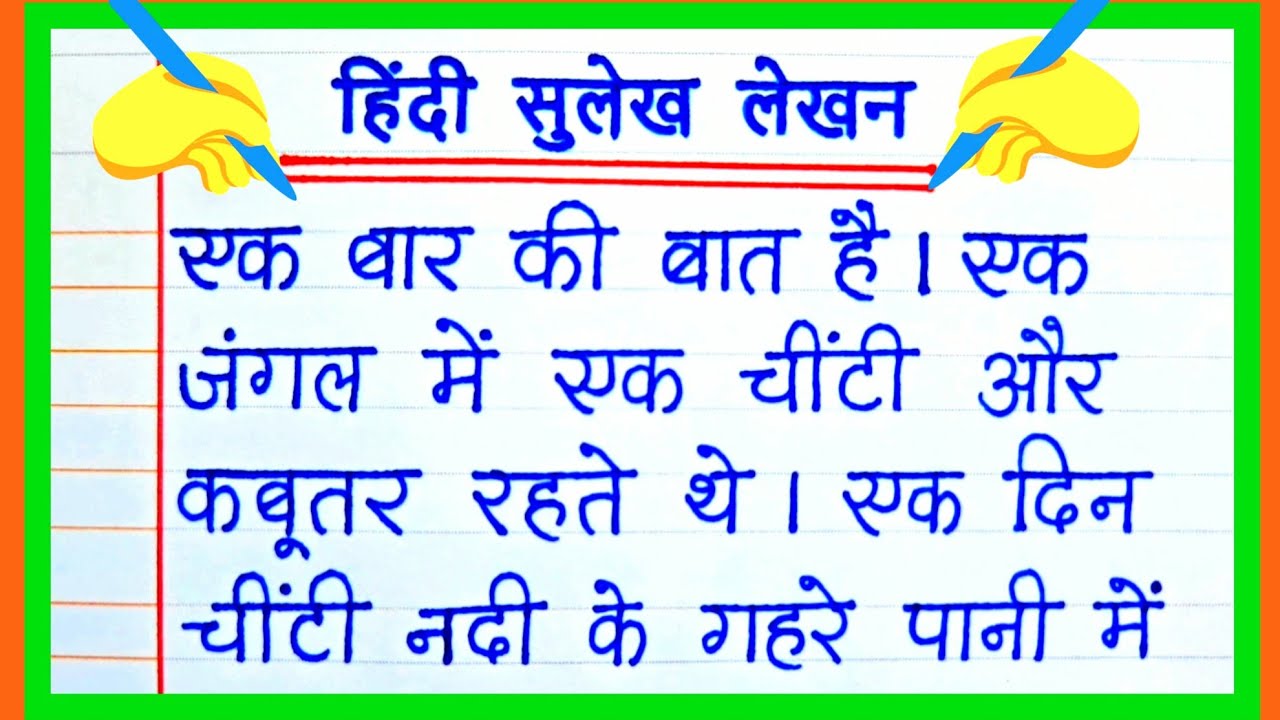 हिंदी सुलेख लेखन
एक बार की बात है। एक
जंगल में एक चींटी और
कबूतर रहते थे। एक दिन
चींटी नदी के गहरे पानी में